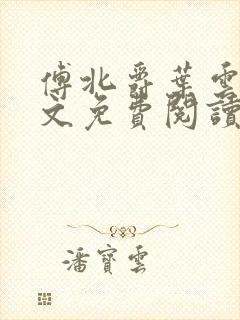 傅北爵葉雲
文免費閱讀
潘寶雲